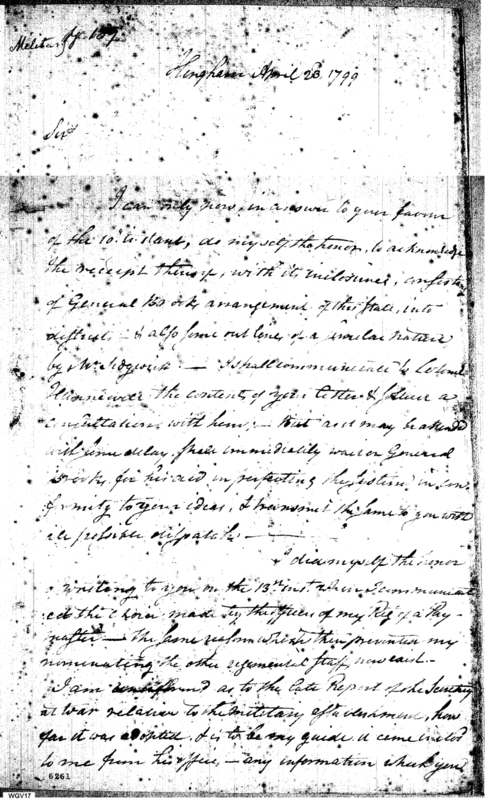 Hingham April 23, 1799
Sir
I can only now, in answer to your favour
of the 10. instant, do myself the honor, to acknowledge
the receipt thereof, with its inclosures, consisting
of General Brooks arrangement of this State, into
districts — & also some out lines of a similar nature
by Mr. Sedgwick. — I shall communicate to Colonel
Hunnewell the contents of your letter & have a
consultation with him; — But as it may be attended
with some delay, shall immediately wait on General
Brooks, for his aid in perfecting the system, in con
formity to your ideas, & transmit the same to you with
all possible dispatch. —
I did myself the honor
of writing to you on the 13th. inst. wherein I communicat
ed the choice made by the officers of my Regt. of a Pay
master — the same reason which then prevented my
nominating the other regimental staff, now exist. —
I am as to the late Report of the Secretary
at War relative to the military establishment, how
far it was adopted & is to be my guide, it came
to me from his office, — any information which you
6261
WGV17